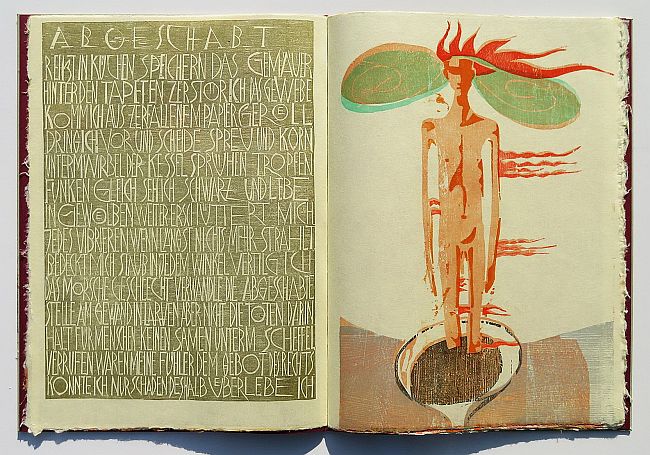 ABGESCHABT
REIBST IN KÜCHEN SPEICHERN DAS GEMÄUER
HINTER DEN TAPETEN ZERSTÖR ICH AS GEWEBE
KOMM ICH AUS ZERFALLENEM PAPER GERÖLLE
DRING ICH VOR UND SCHEIDE SPREU UND KORN
UNTERM WIRBEL DER KESSEL SPRÜHEN TROPFEN
FUNKEN GLEICH SEH ICH SCHWARZ UND LEBE
IN GEWÖLBEN WEITER ERSCHÜTTERT MICH
JEDES VIBRIEREN WENN LÄNGST NICHTS MEHR STRAHLET
BEDECKT MICH STAUB IN JEDEM WINKEL VERTILG ICH
DAS MORSCHE GESCHLECHT VERWANDTE DIE ABGESCHABTE
STELLE AM GEWAND IN LARVEN DER MIST DE TOTEN DARIN
STATT FÜR MENSCHEN MEINEN SAMEN UNTERM SCHEFFEL
VERRUFEN WAREN MEINE FÜHLER DEM GEBOT DES RECHTS
KONNTE ICH NUR SCHADEN DESHALB ÜBERLEBE ICH